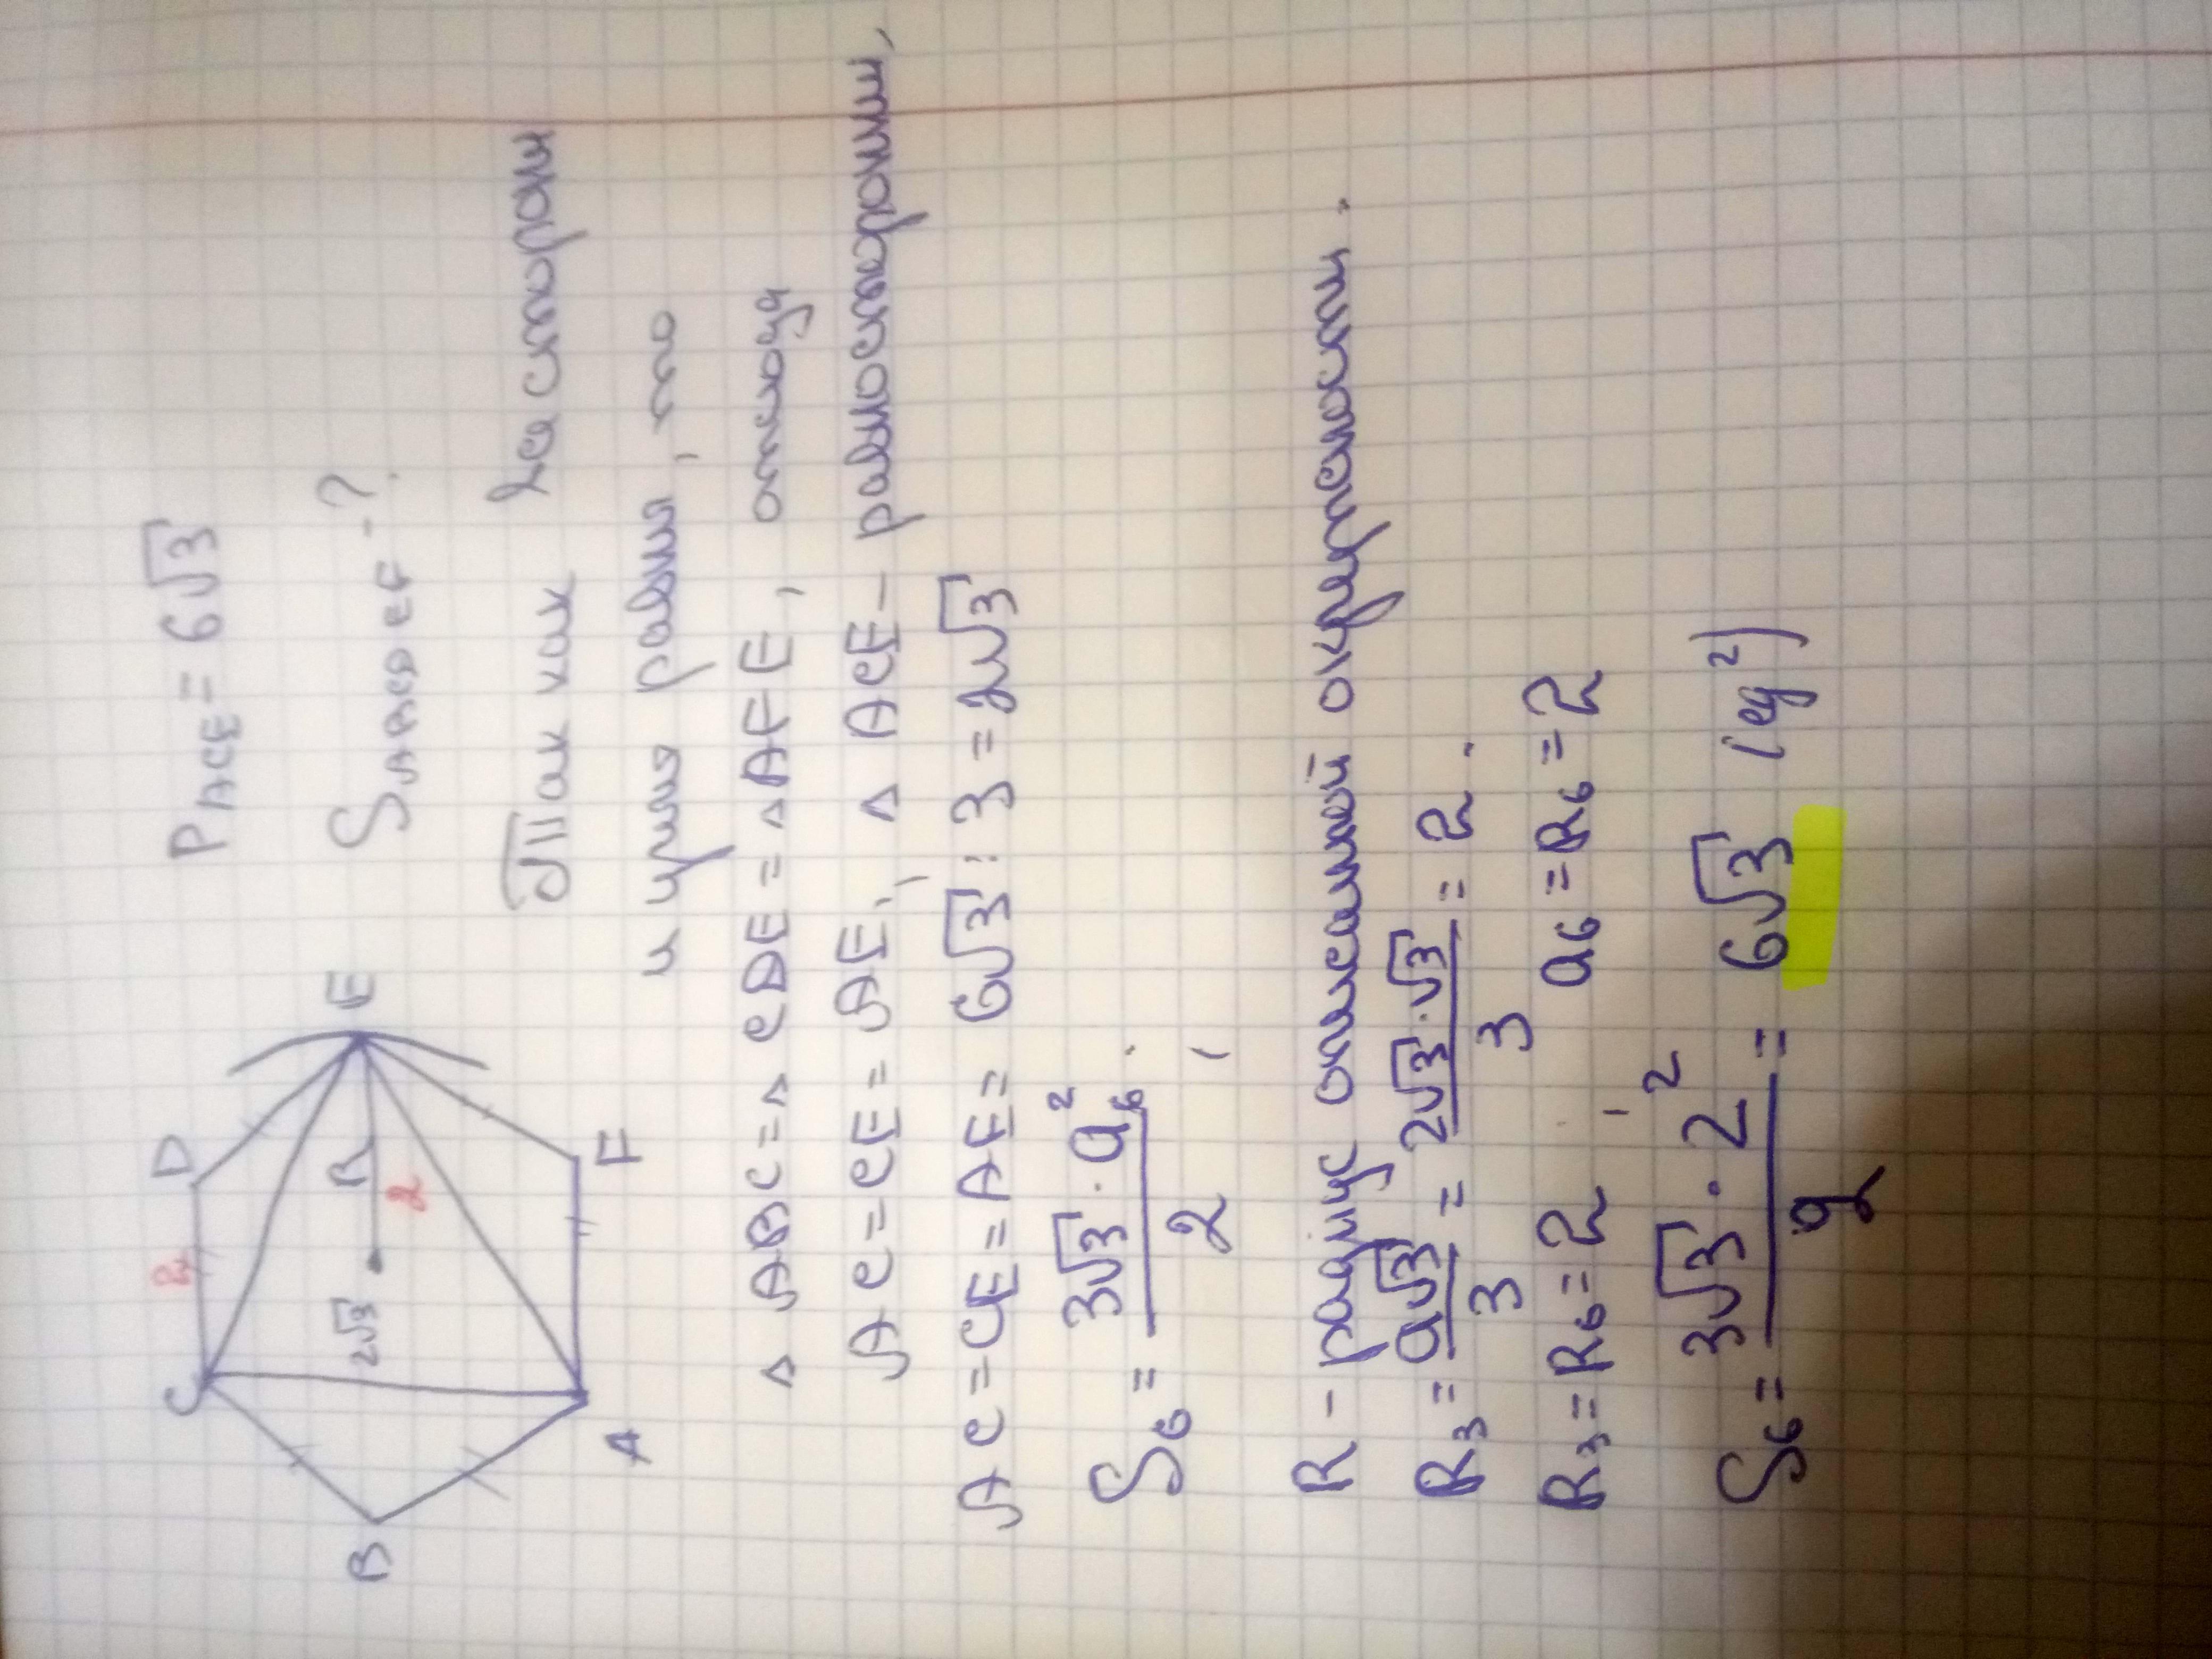 P_ACE = 6√3
S_ABCDEF - ?
Так как все стороны
и углы равны, то
△ ABC = △ CDE = △ AFE, отсюда
AC = CE = AE, △ ACE - равносторонний,
AC = CE = AE = 6√3 : 3 = 2√3
S₆ = 3√3 · a₆² / 2,
R - радиус описанной окружности.
R₃ = a√3 / 3 = 2√3 · √3 / 3 = 2.
R₃ = R₆ = 2, a₆ = R₆ = 2
S₆ = 3√3 · 2² / 2 = 6√3 (ед²)
B
C
D
E
F
A
2
2√3
R
2